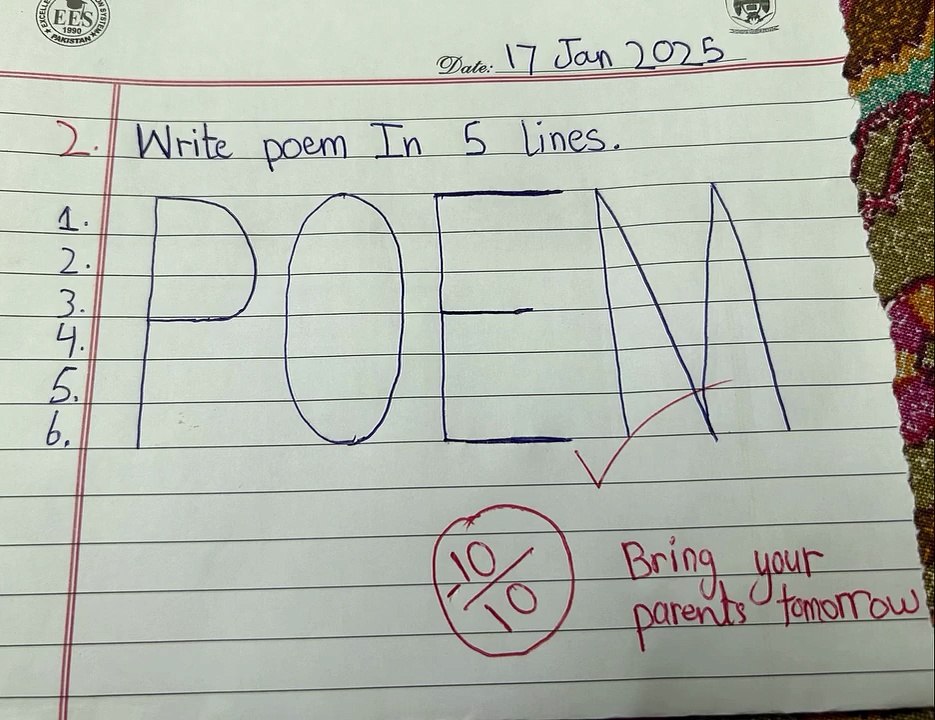 EES
1990
PAKISTAN
Date: 17 Jan 2025
2. Write poem In 5 lines.
1.
2.
3.
4.
5.
6.
POEM
10/10
Bring your
parents tomorrow